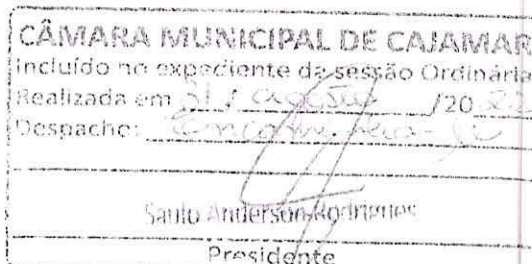 CÂMARA MUNICIPAL DE CAJAMAR
Incluído no expediente da sessão Ordinária
Realizada em 31 / agosto /20 22
Despacho: Encaminha-se
Saulo Anderson Rodrigues
Presidente